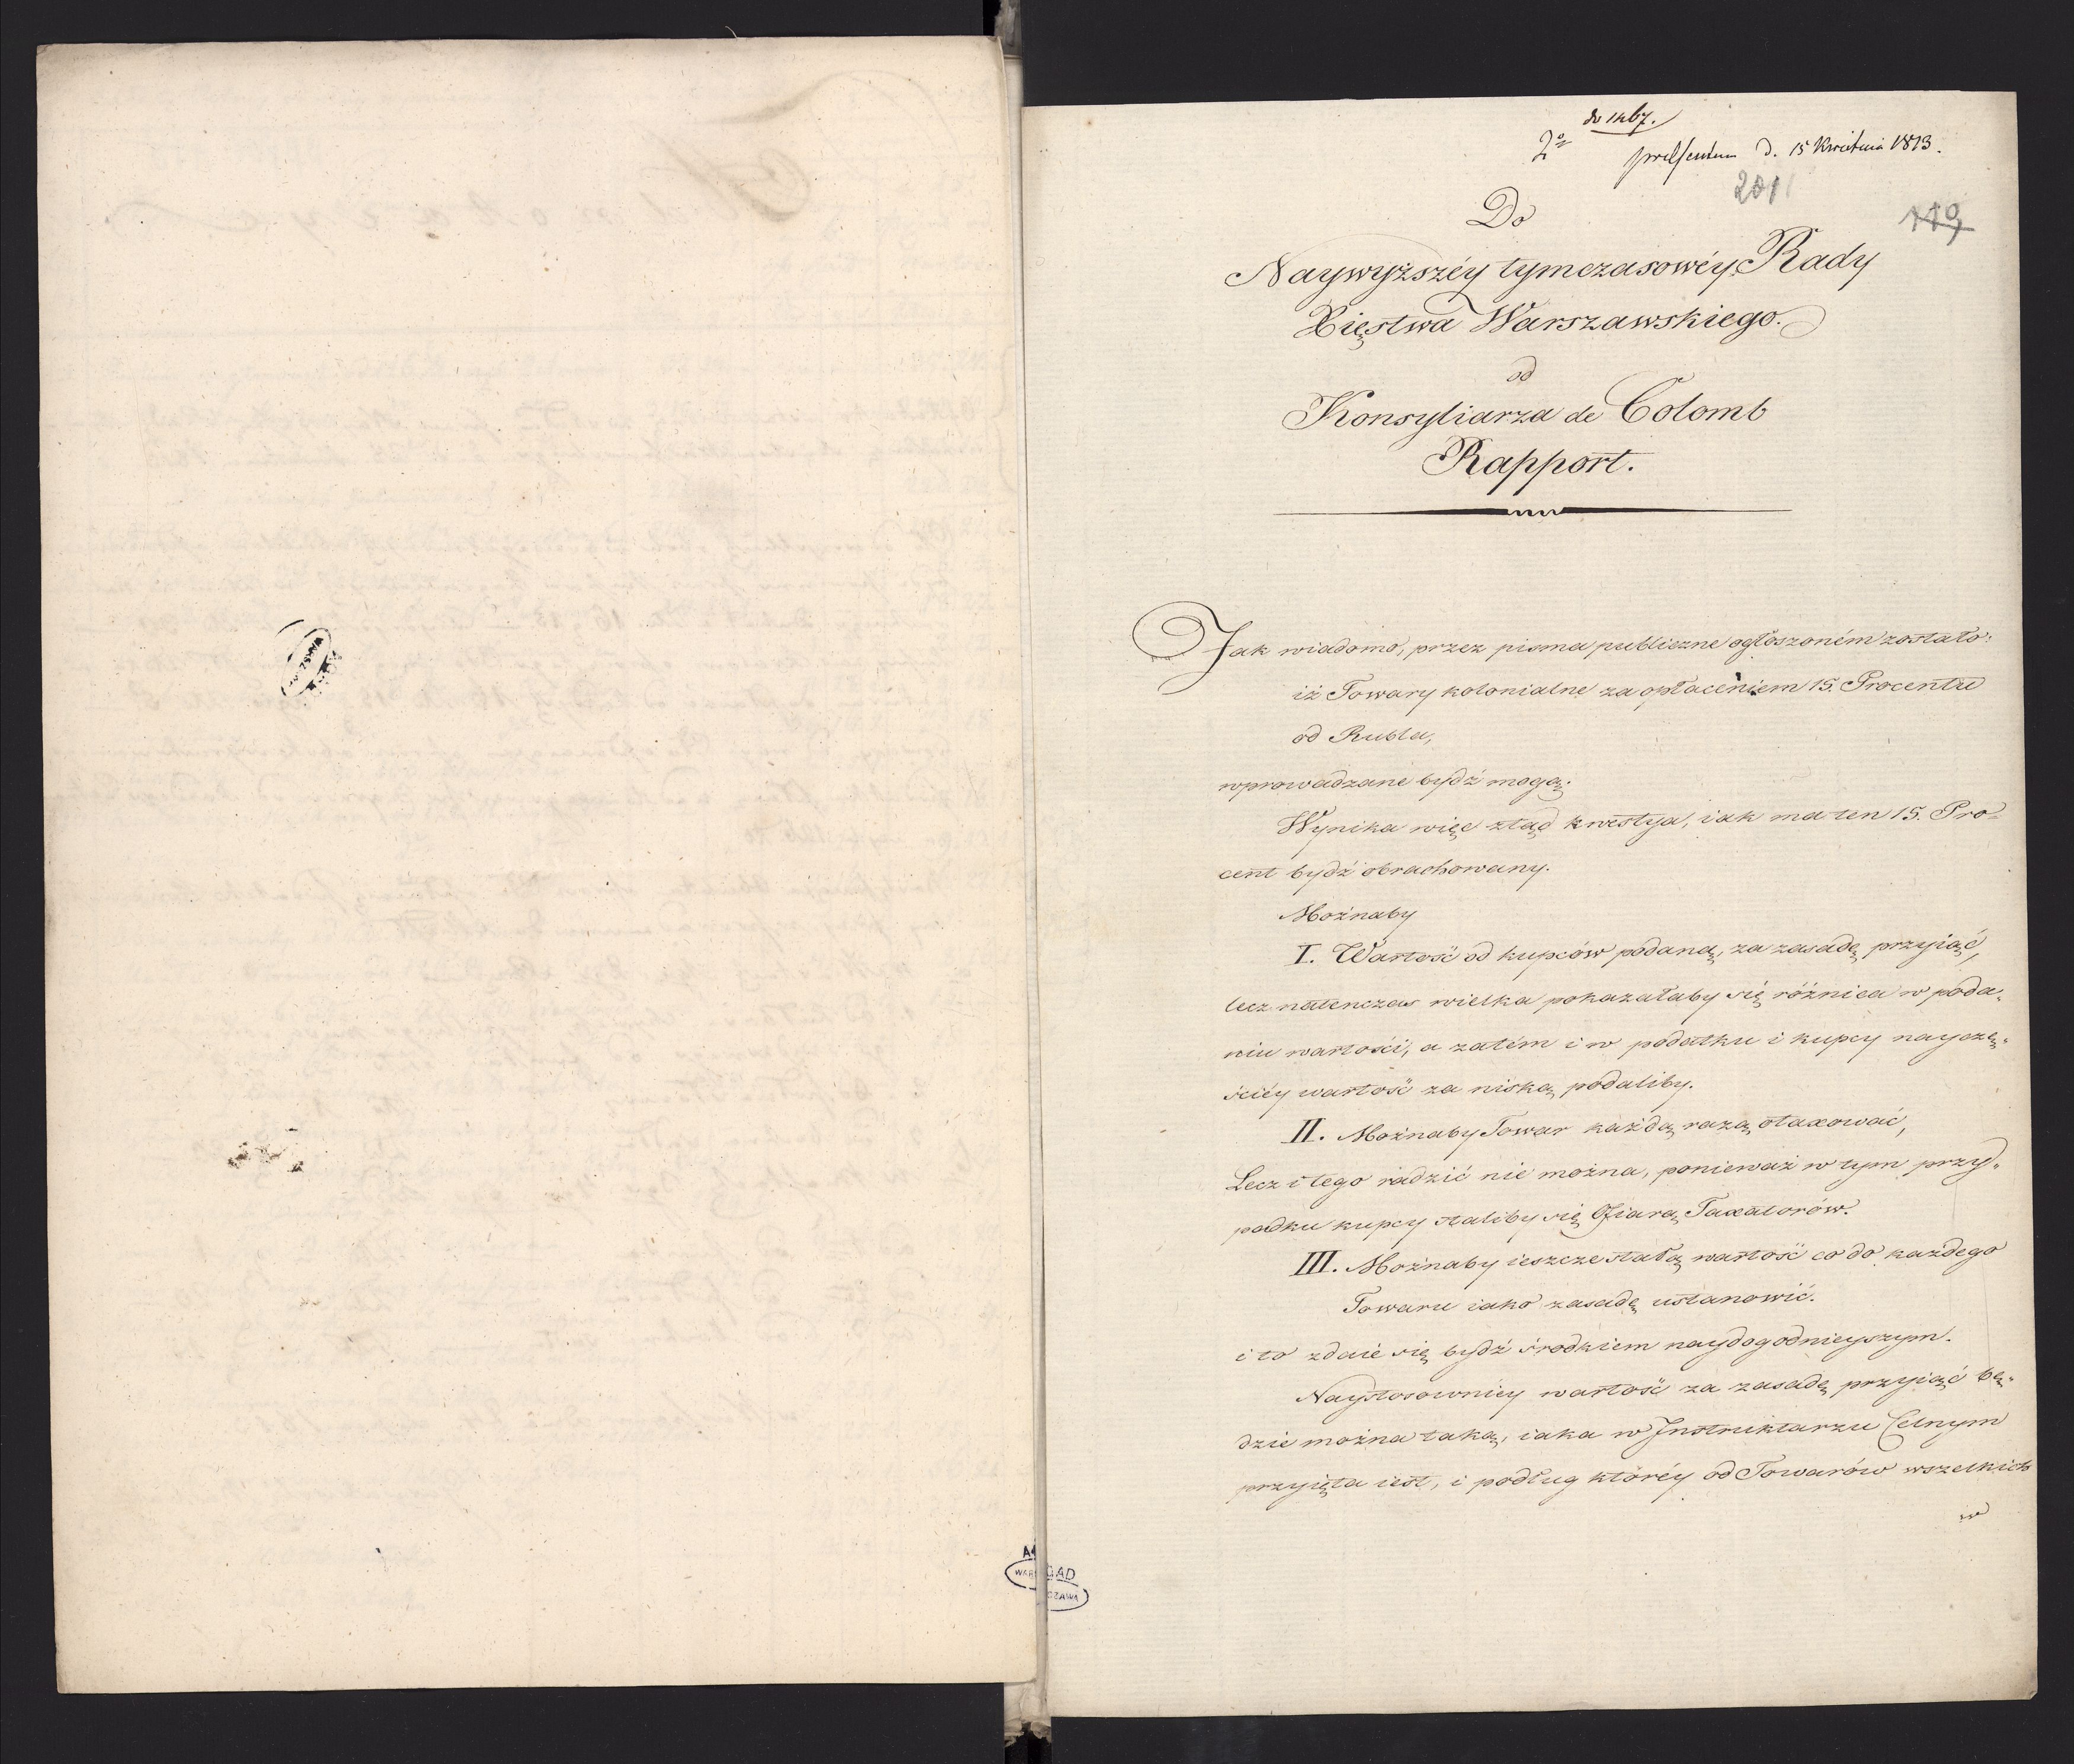 do 1467.
2do praesentum d. 15 Kwietnia 1813.
201
119
Do
Naywyższéy tymczasowéy Rady
Xięstwa Warszawskiego.
od
Konsyliarza de Colomb
Rapport.
Jak wiadomo, przez pisma publiczne ogłoszoném zostało:
iż Towary kolonialne za opłaceniem 15. Procentu
od Rubla,
wprowadzane bydź mogą.
Wynika więc ztąd kwestya, iak ma ten 15. Pro=
cent bydź obrachowany.
Możnaby
I. Wartość od kupców podaną, za zasadę przyiąć,
lecz natenczas wielka pokazałaby się różnica w poda„
niu wartości, a zatém i w podatku i kupcy nayczę„
ściéy wartość za niską podaliby.
II. Możnaby Towar każdą razą otaxować,
Lecz i tego radzić nie można, ponieważ w tym przy„
padku kupcy staliby się Ofiarą Taxatorów.
III. Możnaby ieszcze stałą wartość co do każdego
Towaru iako zasadę ustanowić.
i to zdaie się bydź środkiem naydogodnieyszym.
Naystosowniey wartość za zasadę przyiąć bę„
dzie można taką, iaka w Instruktarzu Celnym
przyięta iest, i podług któréy od Towarów wszelkich
w
AGAD
WARSZAWA